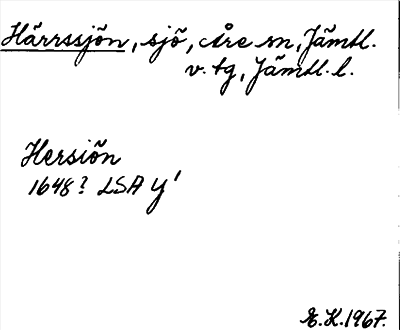 Härrssjön, sjö, Åre sn, Jämtl.
v. tg, Jämtl. l.
Hersiön
1648? LSA Y'
E.K. 1967.